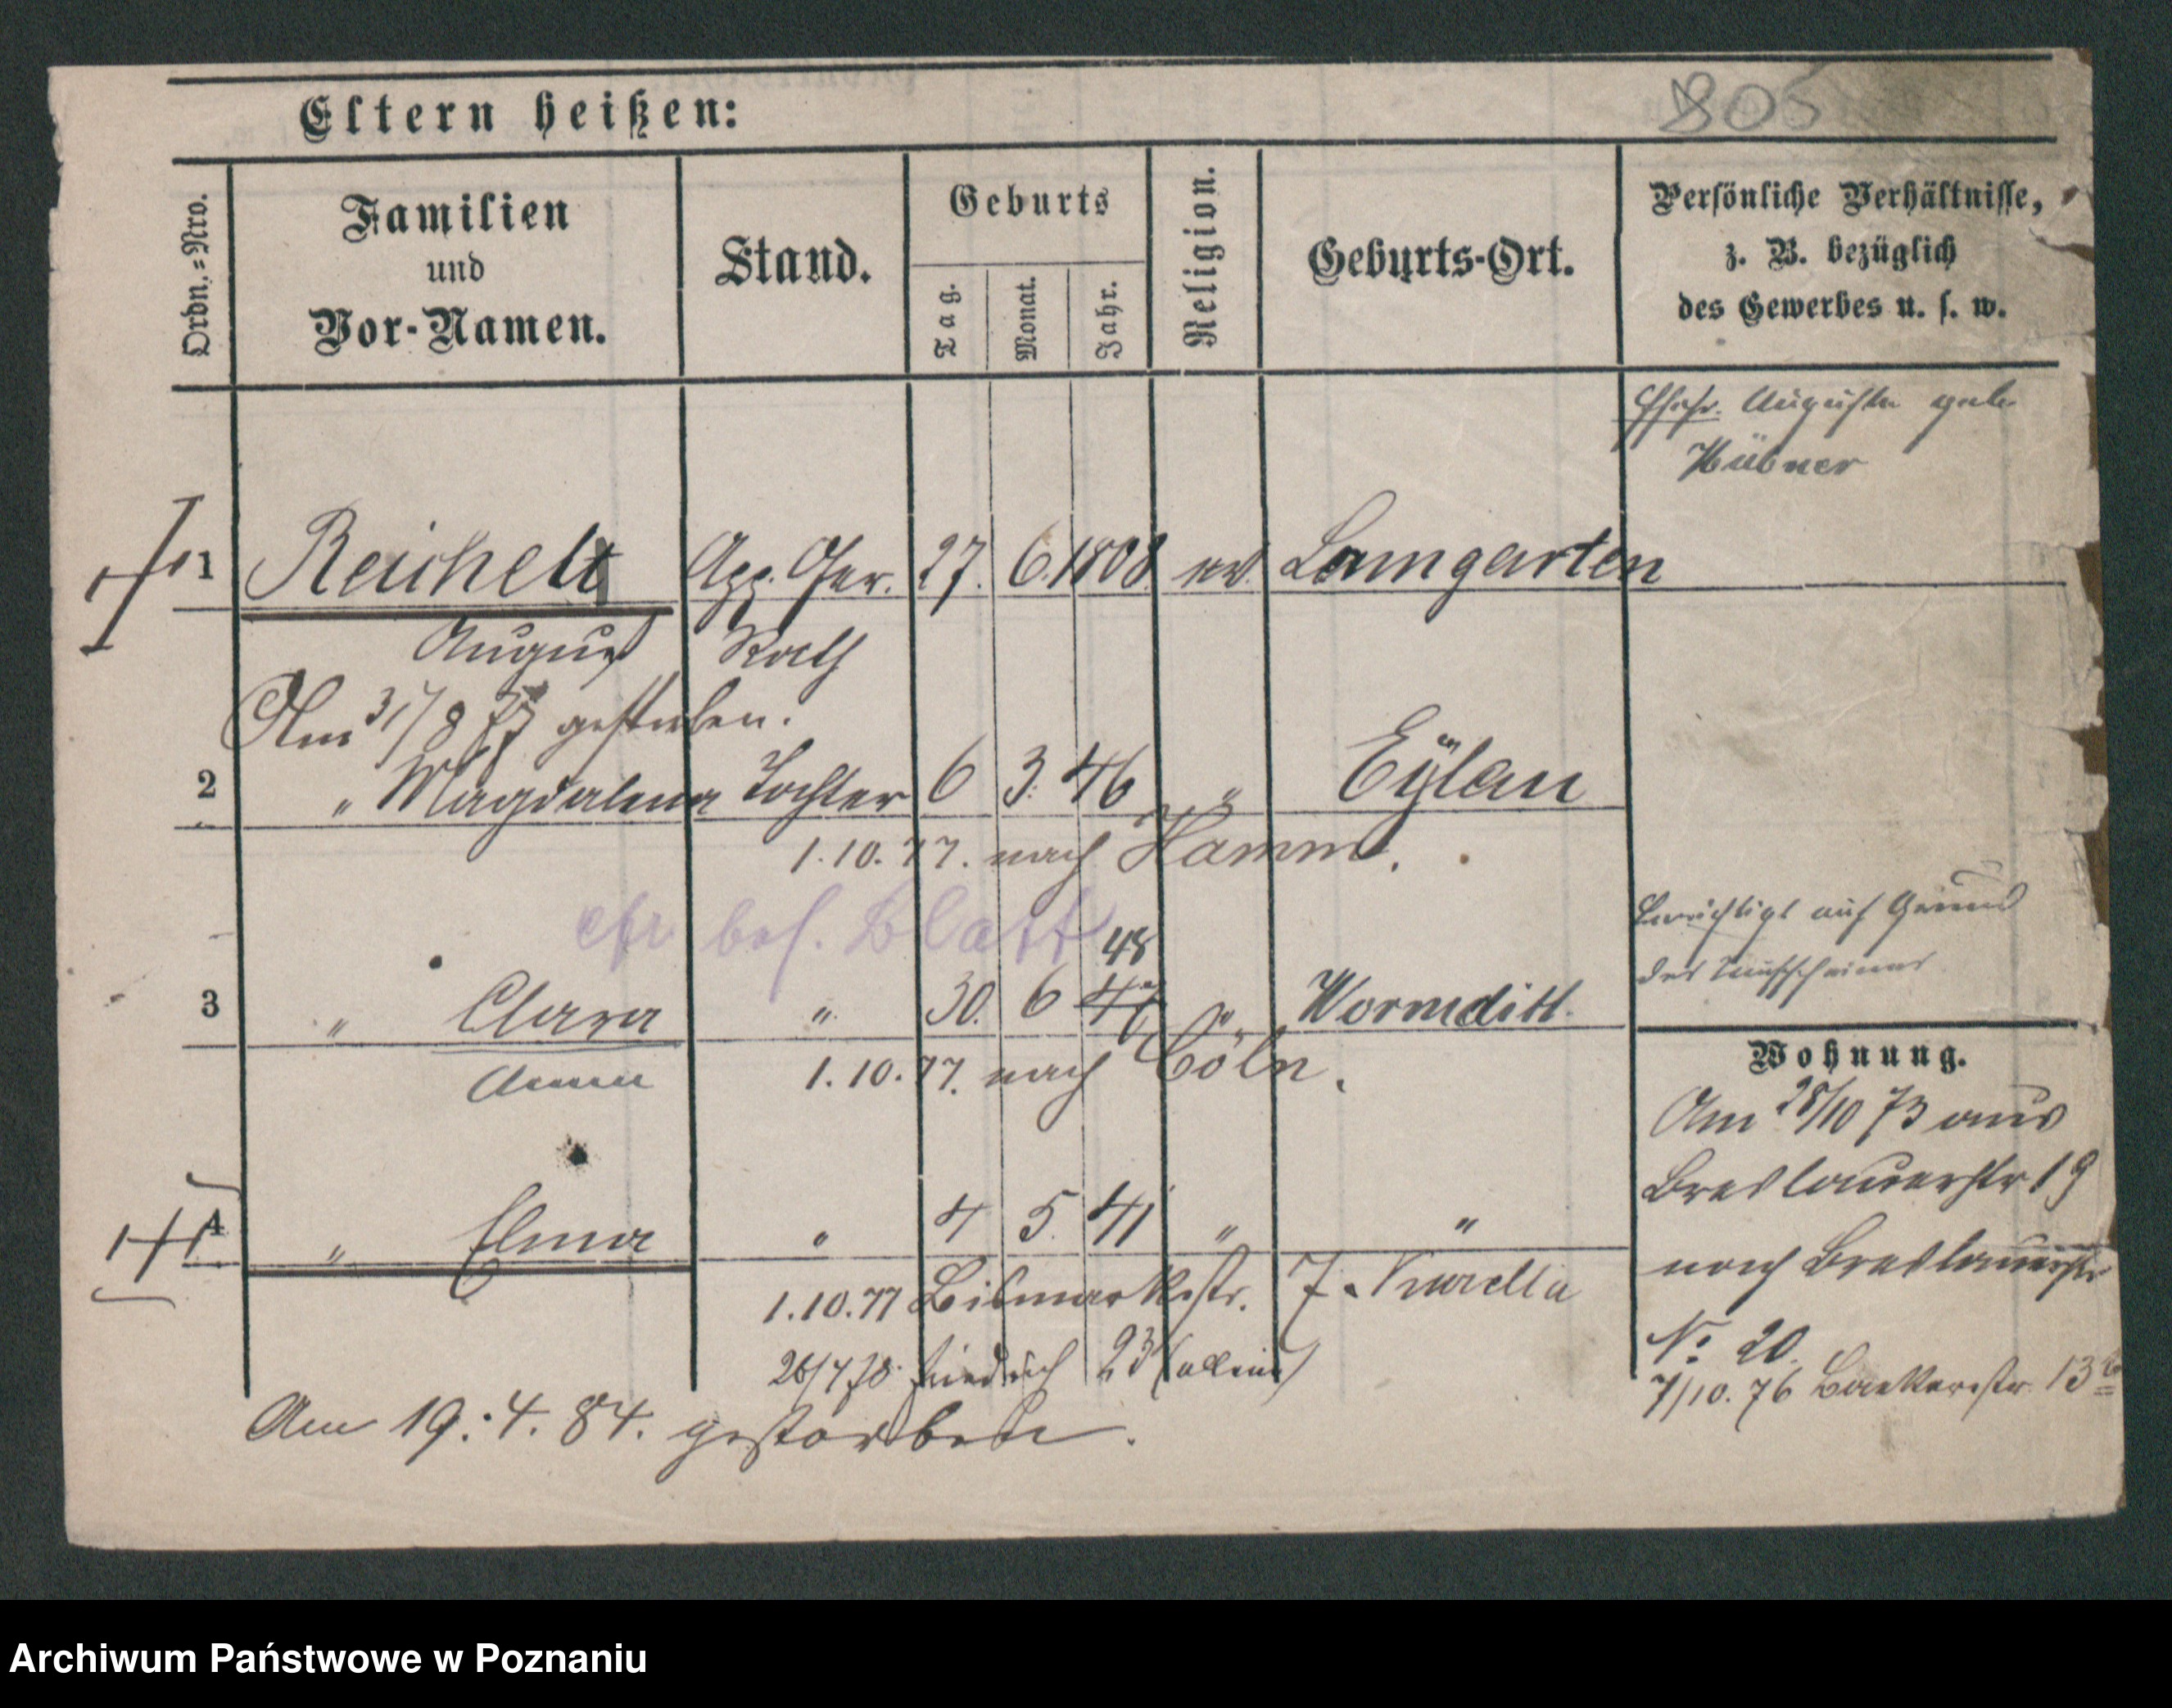 805
Eltern heißen:
Ordn.=Nro.
Familien
und
Vor-Namen.
Stand.
Geburts
Tag.
Monat.
Jahr.
Religion.
Geburts-Ort.
Persönliche Verhältnisse,
z. B. bezüglich
des Gewerbes u. s. w.
Ehefr. Auguste geb.
Hübner
1 Reichelt App. Ger. 27. 6. 1808 ev. Lamgarten
August Rath
Am 31/8 77 gestorben.
2 " Magdalena Tochter 6 3. 46 " Eylau
1.10.77. nach Hamm.
cfr bes. Blatt
48
3 " Clara " 30. 6 47 " Wormditt.
Anna 1.10.77. nach Cöln.
Berichtigt auf Grund
des Taufscheines
4 " Elma " 4 5. 41 " "
1.10.77 Bismarckstr. 7.
26/4 78. Friedrich 23 (allein)
Am 19.4.84. gestorben.
Wohnung.
Am 28/10 73 aus
Breslauerstr 19
nach Breslauerstr
No 20.
7/10. 76 Baeckerstr. 13b
Archiwum Państwowe w Poznaniu